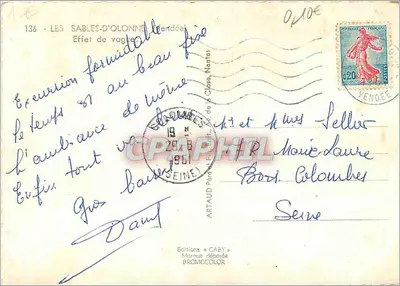 136 - LES SABLES-D'OLONNE (Vendée)
Effet de vagues
0,10€
Excursion formidable
le temps est au beau fixe
l'ambiance de même
Enfin tout va bien
Gros baisers
0,20
VENDEE
COLOMBES
19 H
1961
(SEINE)
CPAPHIL
ARTAUD Père et Fils Nantes
Mr et Mmes Sellier
Marie Laure
Bois Colombes
Seine
Editions « GABY »
Marque déposée
BROMOCOLOR